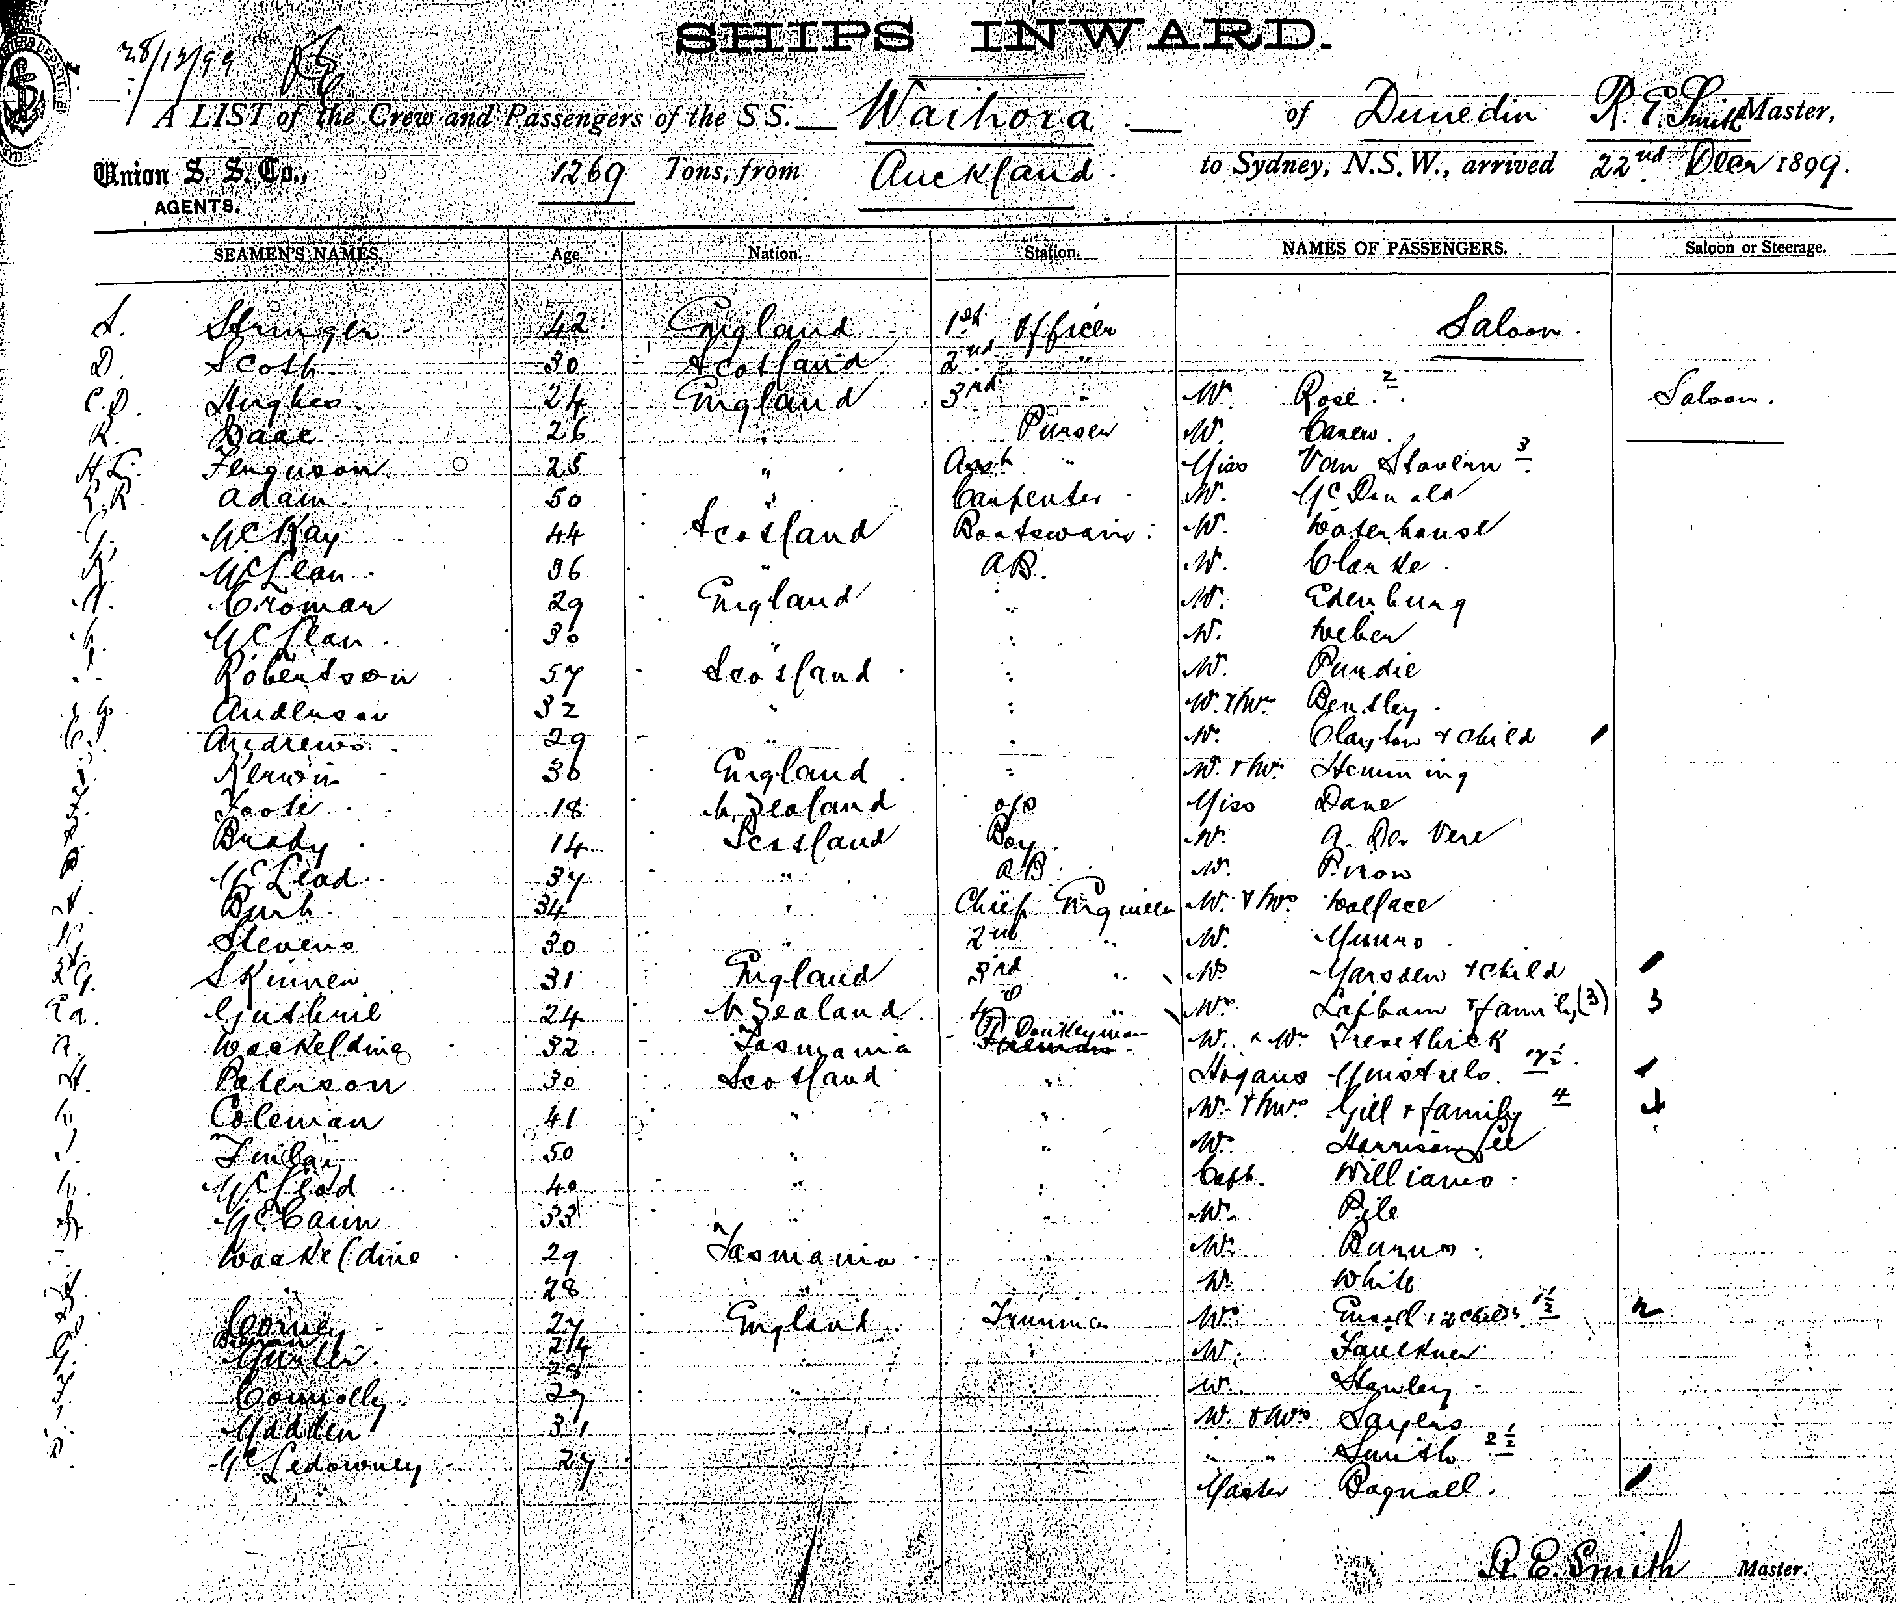 SHIPS INWARD.
28/12/99
A LIST of the Crew and Passengers of the S.S. Waihora of Dunedin R. E. Smith Master,
Union S. S. Co., 1269 Tons, from Auckland to Sydney, N.S.W., arrived 22nd Decr 1899.
AGENTS.
SEAMEN'S NAMES. Age Nation. Station. NAMES OF PASSENGERS. Saloon or Steerage.
Stringer 42 England 1st Officer Saloon.
D. Scott 30 Scotland 2nd "
C. D. Hughes 24 England 3rd " Mr. Rose 2 Saloon.
R. Isaac 26 " Purser Mr. Carew.
Ferguson 25 " Asst " Miss Van Stavern 3
Adam 50 " Carpenter Mr. McDonald
McKay 44 Scotland Boatswain Mr. Waterhouse
McLean 36 " AB. Mr. Clarke
Cromar 29 England " Mr. Edenburg
McLean 30 " " Mr. Weber
Robertson 57 Scotland " Mr. Purdie
Anderson 32 " " Mr. & Mrs. Bentley
Andrews 29 " " Mr. Clayton & child
Kerwin 36 England " Mr. & Mrs. Hemming
Foote 18 N. Zealand O/S Miss Dane
Brady 14 Scotland Boy Mr. A. De Vere
McLeod 37 " AB Mr. Piron
34 " Chief Engineer Mr. & Mrs Wallace
Stevens 30 " 2nd " Mr. Munro
Skinner 31 England 3rd " Mr Marsden & child
Guthrie 24 N Zealand 4th " Mr. Lapham & family (3) 3
Wackeldine 32 Tasmania Donkeyman Trevethick
Paterson 30 Scotland " Hogans Minstrels
Coleman 41 " " Mr. & Mrs Gill & family 4
Finlay 50 " " Mr. Harrison Lee
McLeod 40 " " Capt. Williams
McCaun 33 " " Mr. Pile
Wackeldine 29 Tasmania " Mr. Burns
" 28 " Mr. White
27 England Trimmer
24 " " Mr. Faulkner
28
Connolly 29 " Mr. Hawley
Madden 31 " Mr. & Mrs Sayers
McLedowney 27 " " Smith 2 1/2
Master Bagnall.
R. E. Smith Master.